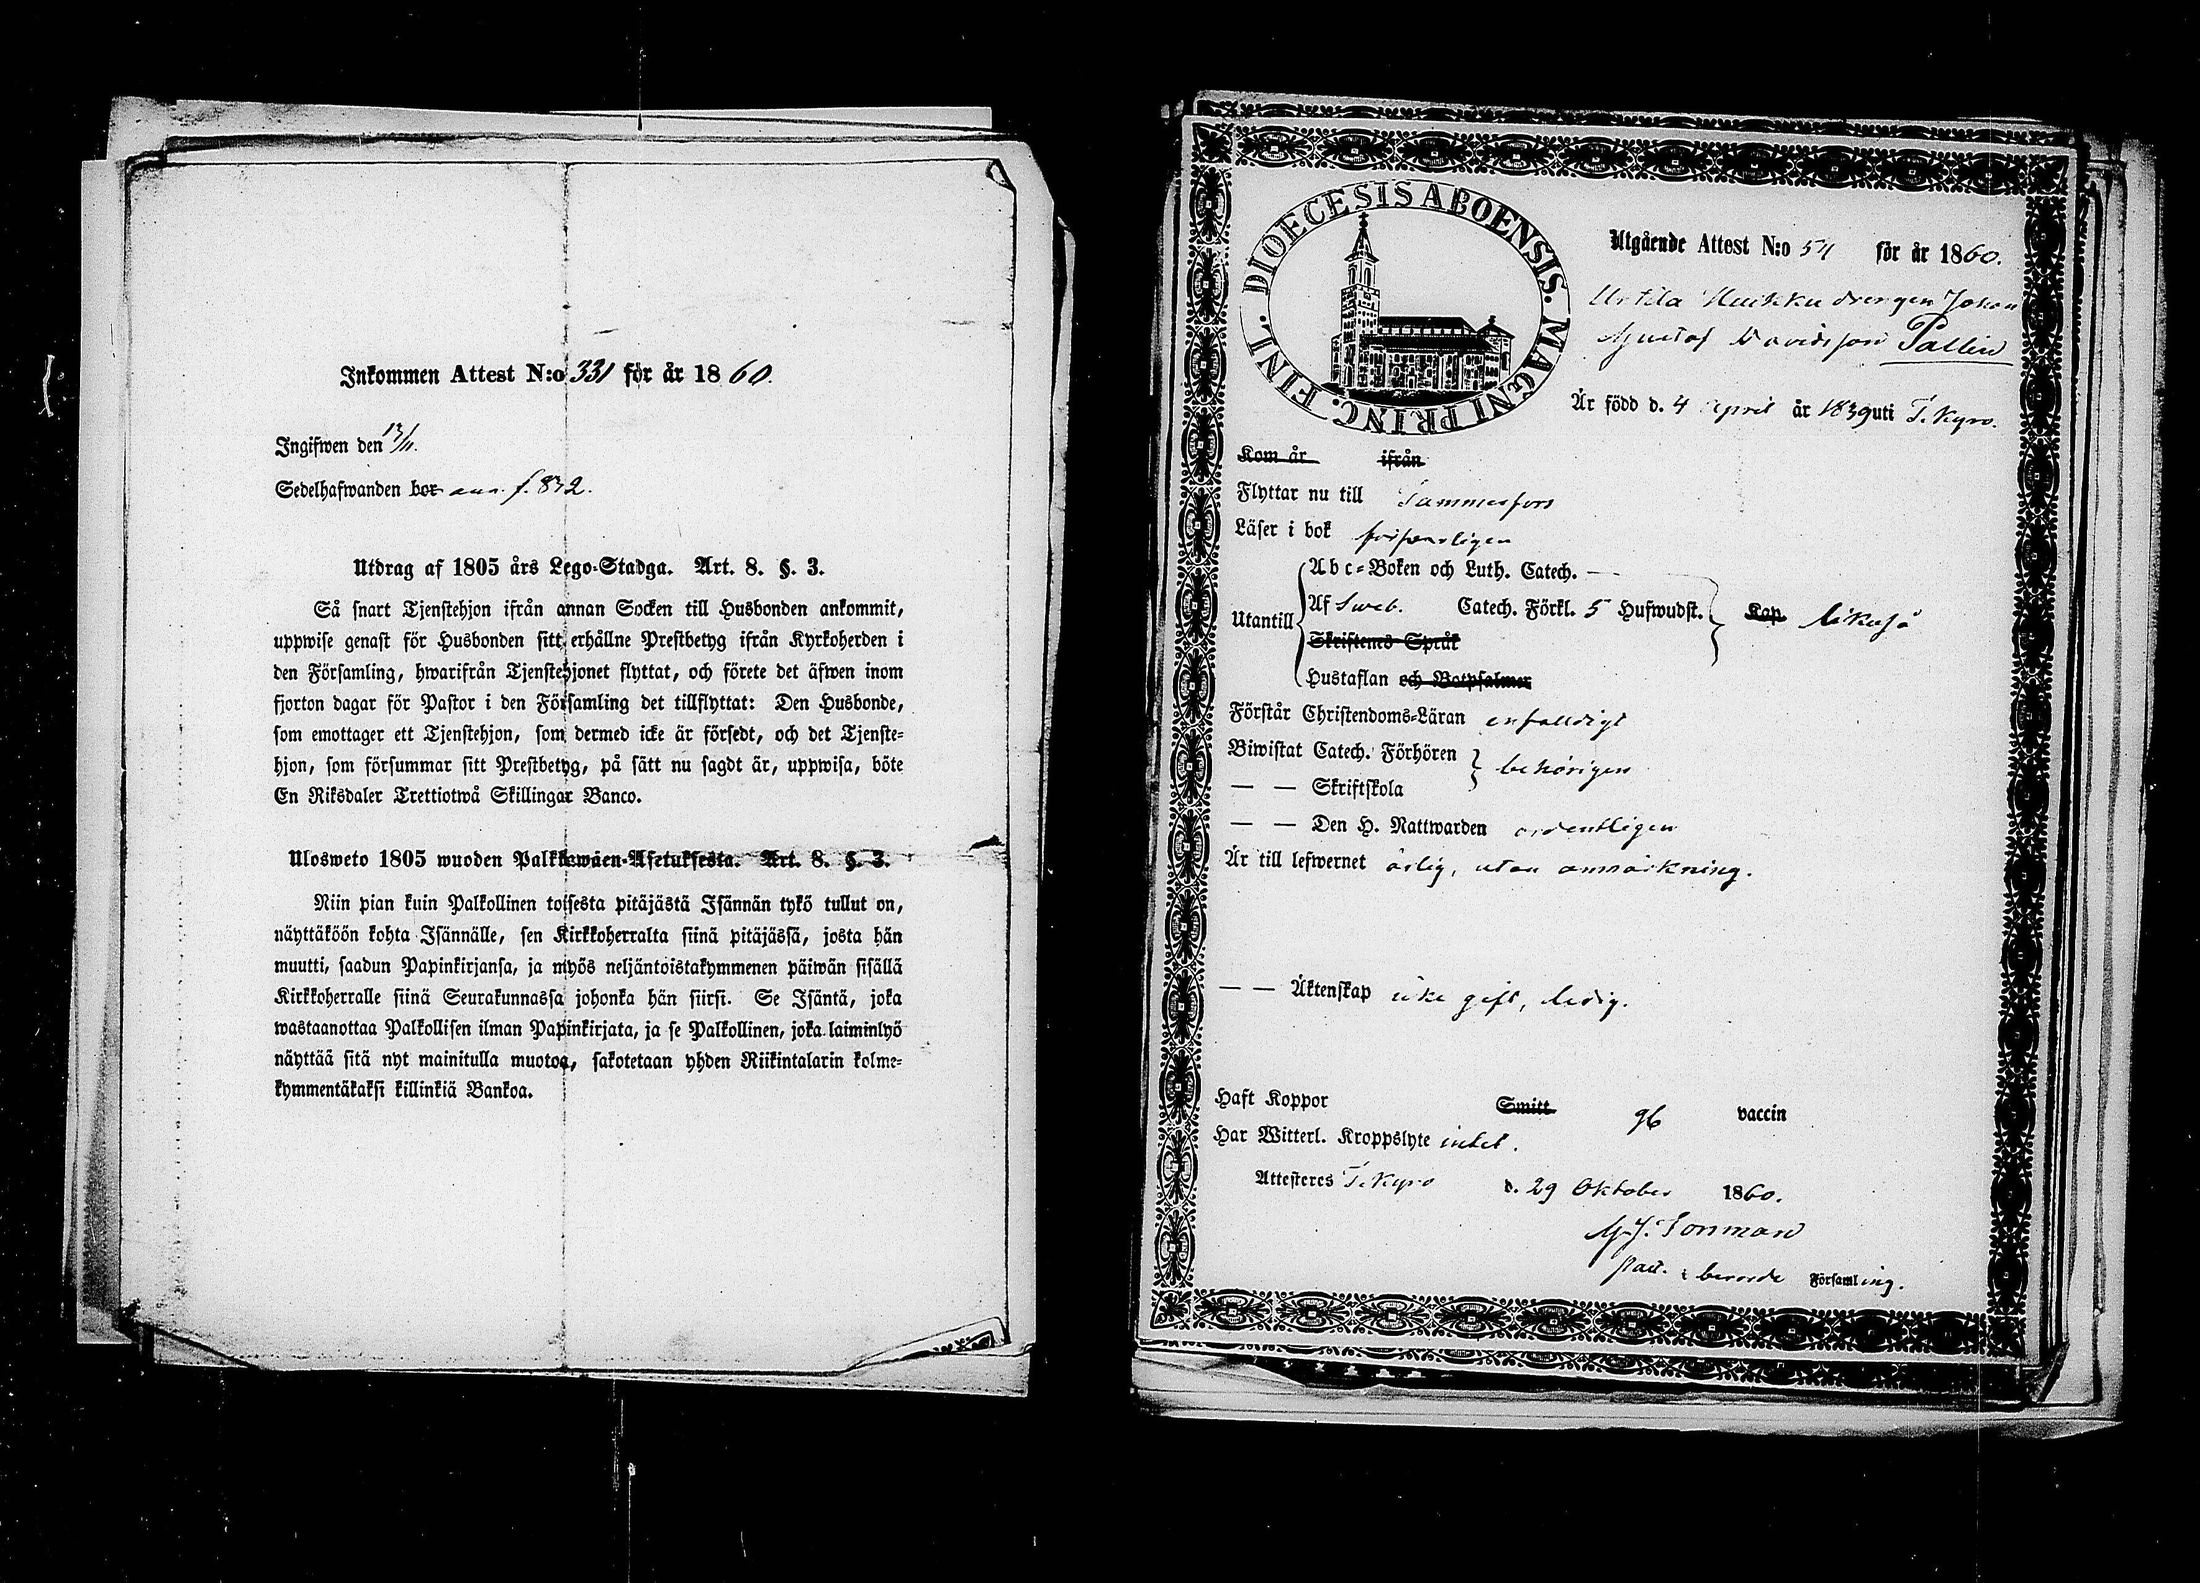 Inkommen Attest N:o 331 för år 1860.
Ingifwen den 13/11.
Sedelhafwanden bor ann. f. 832.
Utdrag af 1805 års Lego-Stadga. Art. 8. §. 3.
Så snart Tjenstehjon ifrån annan Socken till Husbonden ankommit,
uppwise genast för Husbonden sitt erhållne Prestbetyg ifrån Kyrkoherden i
den Församling, hwarifrån Tjenstehjonet flyttat, och förete det äfwen inom
fjorton dagar för Pastor i den Församling det tillflyttat: Den Husbonde,
som emottager ett Tjenstehjon, som dermed icke är försedt, och det Tjenste-
hjon, som försummar sitt Prestbetyg, på sätt nu sagdt är, uppwisa, böte
En Riksdaler Trettiotwå Skillingar Banco.
Ulosweto 1805 wuoden Palkkawäen-Asetuksesta. Art. 8. §. 3.
Niin pian kuin Palkollinen toisesta pitäjästä Isännän tykö tullut on,
näyttäköön kohta Isännälle, sen Kirkkoherralta siinä pitäjässä, josta hän
muutti, saadun Papinkirjansa, ja myös neljäntoistakymmenen päiwän sisällä
Kirkkoherralle siinä Seurakunnassa johonka hän siirsi. Se Isäntä, joka
wastaanottaa Palkollisen ilman Papinkirjata, ja se Palkollinen, joka laiminlyö
näyttää sitä nyt mainitulla muotoa, sakotetaan yhden Riikintalarin kolme-
kymmentäkaksi killinkiä Bankoa.
DIOECESIS ABOENSIS. MAGNI PRINC. FINL.
Utgående Attest N:o 54 för år 1860.
Heikku drengen Johan
Gustaf Davidsson Pallin
Är född d. 4 April år 1839 uti T. Kyro.
Kom år ifrån
Flyttar nu till Tammerfors
Läser i bok försvarligen
Abc-Boken och Luth. Catech. —
Utantill Af Sweb. Catech. Förkl. 5 Hufwudst. Kap. likaså
Skriftenes Språk
Hustaflan och Botpsalmer
Förstår Christendoms-Läran enfaldigt
Biwistat Catech. Förhören behörigen
— — Skriftskola
— — Den H. Nattwarden ordentligen
Är till lefwernet ärlig, utan anmärkning.
— — Äktenskap icke gift, ledig.
Haft Koppor Smitt gb vaccin
Har Witterl. Kroppslyte intet.
Attesteres T. Kyro d. 29 Oktober 1860.
G. J. Forsman
past. i berörde Församling.